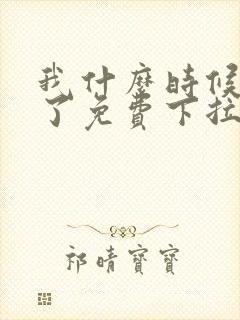 我什麼時候
了免費下拉
祁晴寶寶